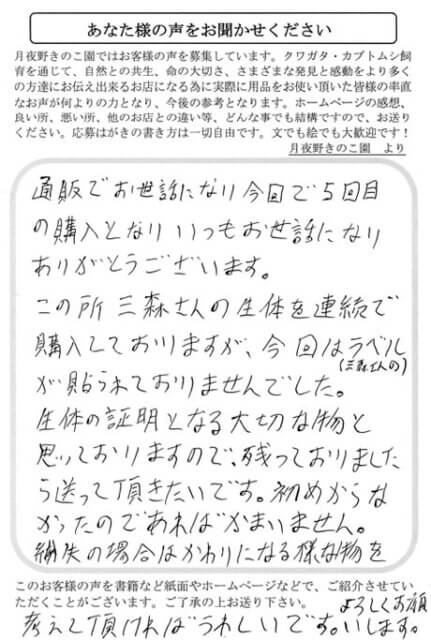 あなた様の声をお聞かせください
月夜野きのこ園ではお客様の声を募集しています。クワガタ・カブトムシ飼
育を通じて、自然との共生、命の大切さ、さまざまな発見と感動をより多く
の方達にお伝え出来るお店になる為に実際に用品をお使い頂いた皆様の率直
なお声が何よりの力となり、今後の参考となります。ホームページの感想、
良い所、悪い所、他のお店との違い等、どんな事でも結構ですので、お送り
ください。応募はがきの書き方は一切自由です。文でも絵でも大歓迎です！
月夜野きのこ園　より
通販でお世話になり今回で5回目
の購入となりいつもお世話になり
ありがとうございます。
この所 三森さんの生体を連続で
購入しておりますが、今回はラベル
(三森さんの)
が貼られておりませんでした。
生体の証明となる大切な物と
思っておりますので、残っておりました
ら送って頂きたいです。初めからな
かったのであればかまいません。
紛失の場合はかわりになる様な物を
このお客様の声を書籍など紙面やホームページなどで、ご紹介させてい
ただくことがございます。ご了承の上お送り下さい。
考えて頂ければうれしいです。
よろしくお願
いします。